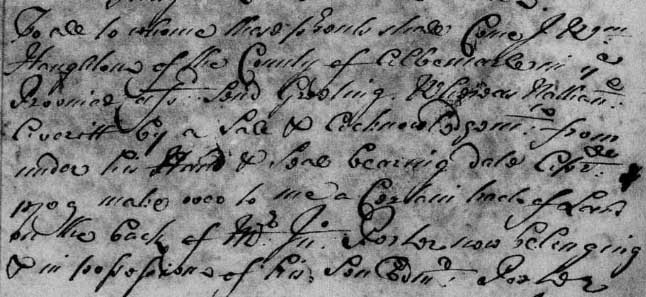 To all to whome these p'sents shall Come I Wm
Haughton of the County of Albemarle in ye
Province afsd Send Greeting Whereas Nathan
Everitt by a Sale & Acknowledgemt from
under his Hand & Seal bearing date Apr
1709 make over to me a Certain track of Land
on the back of Mr Jn Porter now belonging
& in possession of his Son Edmd Porter